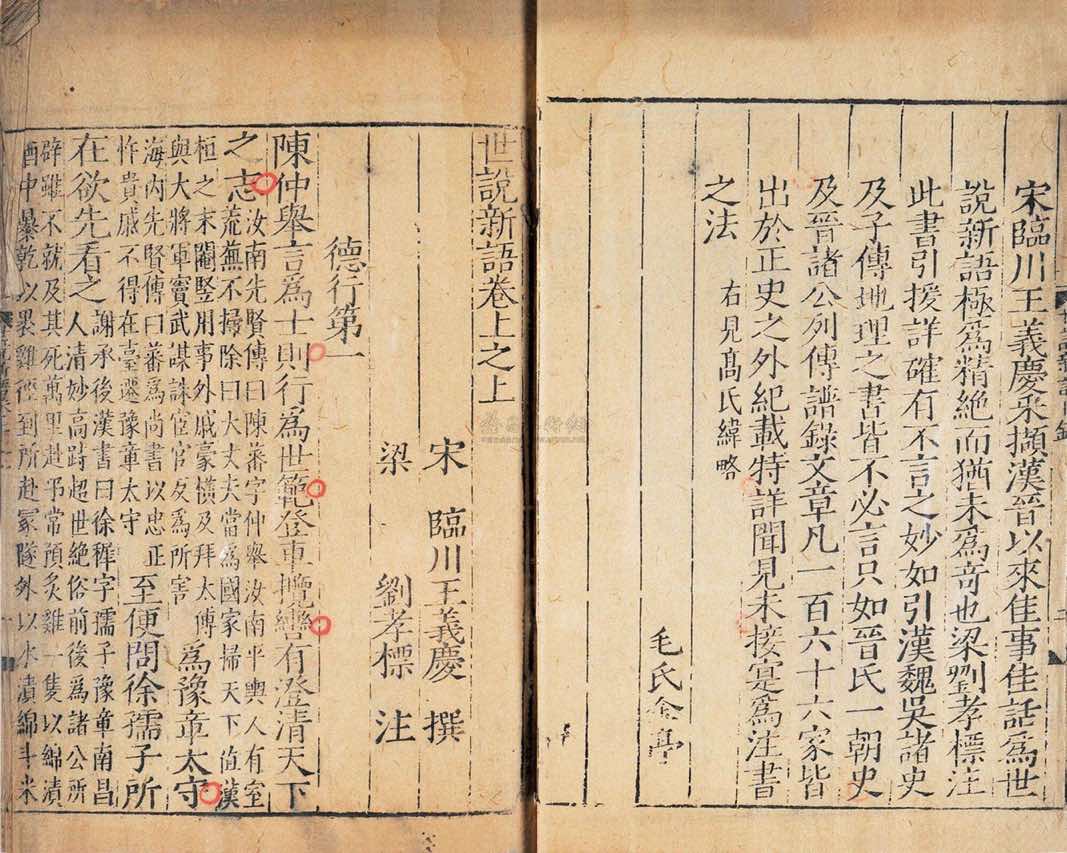 宋臨川王義慶采擷漢晉以來佳事佳話爲世
說新語極爲精絕而猶未爲奇也梁劉孝標注
此書引援詳確有不言之妙如引漢魏吳諸史
及子傳地理之書皆不必言只如晉氏一朝史
及晉諸公列傳譜錄文章凡一百六十六家皆
出於正史之外紀載特詳聞見未接寔爲注書
之法 右見髙氏緯略
毛氏金亭
世說新語卷上之上
宋 臨川王義慶 撰
梁 劉孝標 注
德行第一
陳仲舉言爲士則行爲世範登車攬轡有澄清天下
之志
汝南先賢傳曰陳蕃字仲舉汝南平輿人有室
荒蕪不掃除曰大丈夫當爲國家掃天下值漢
桓之末閹豎用事外戚豪橫及拜太傅
與大將軍竇武謀誅宦官反爲所害
爲豫章太守
海內先賢傳曰蕃爲尚書以忠正
忤貴戚不得在臺遷豫章太守
至便問徐孺子所
在欲先看之
謝承後漢書曰徐穉字孺子豫章南昌
人清妙高跱超世絕俗前後爲諸公所
辟雖不就及其死萬里赴弔常預炙雞一隻以綿漬
酒中暴乾以裹雞徑到所赴冢隧外以水漬綿斗米